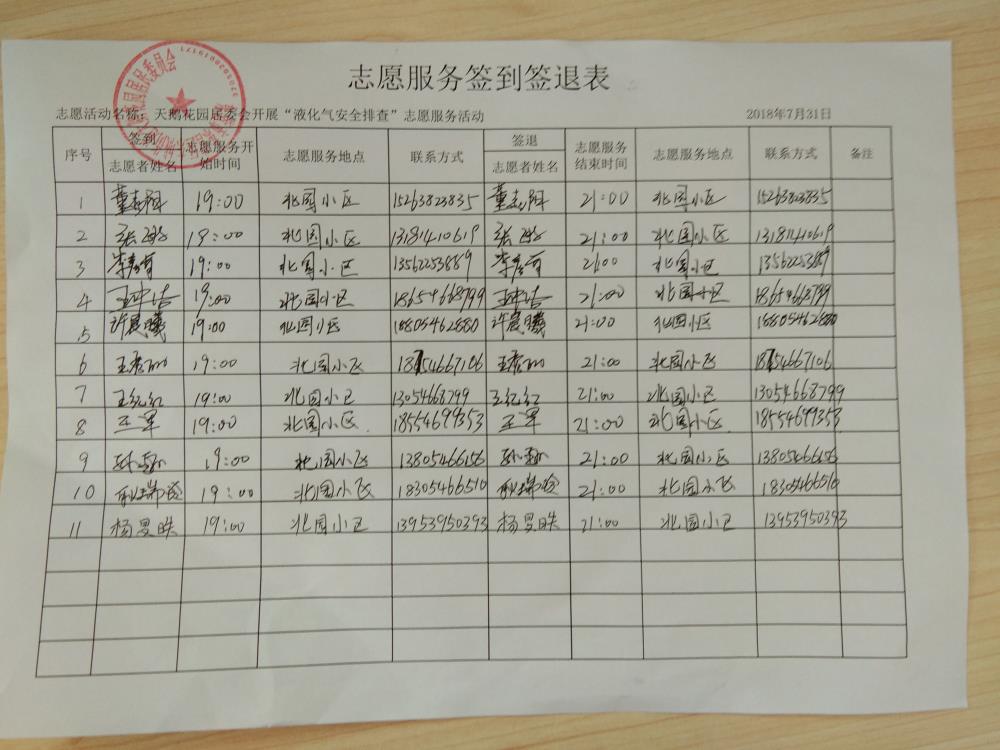 志愿服务签到签退表
志愿活动名称：天鹅花园居委会开展“液化气安全排查”志愿服务活动 2018年7月31日
序号 签到 志愿者姓名 志愿服务开始时间 志愿服务地点 联系方式 签退 志愿者姓名 志愿服务结束时间 志愿服务地点 联系方式 备注
1 19:00 北园小区 15263823835 21:00 北园小区 15263823835
2 19:00 北园小区 13181410619 21:00 北园小区 13181410619
3 19:00 北园小区 13562253889 21:00 北园小区 13562253889
4 19:00 北园小区 18654668799 21:00 北园小区 18654668799
5 许晨曦 19:00 北园小区 18805462880 21:00 许晨曦 北园小区 18805462880
6 19:00 北园小区 18754667106 21:00 北园小区 18754667106
7 王红红 19:00 北园小区 13054668799 王红红 21:00 北园小区 13054668799
8 王军 19:00 北园小区 18554699353 王军 21:00 北园小区 18554699353
9 19:00 北园小区 13805466156 21:00 北园小区 13805466156
10 19:00 北园小区 18305466510 21:00 北园小区 18305466510
11 杨昊昳 19:00 北园小区 13953950393 杨昊昳 21:00 北园小区 13953950393